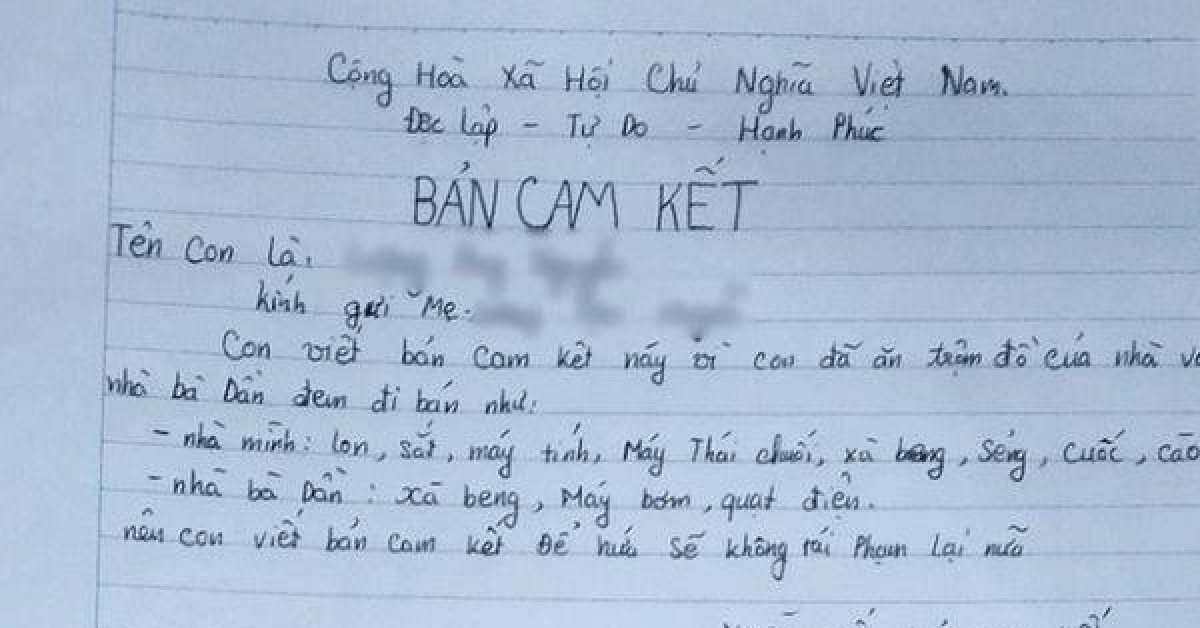 Cộng Hoà Xã Hội Chủ Nghĩa Việt Nam.
Độc lập - Tự Do - Hạnh Phúc
BẢN CAM KẾT
Tên Con là:
kính gửi Mẹ:
Con viết bản Cam kết này vì con đã ăn trộm đồ của nhà
nhà bà Dần đem đi bán như:
- nhà mình: lon, sắt, máy tính, Máy Thái chuối, xà beng, Sẻng, Cuốc, cào
- nhà bà Dần: xà beng, Máy bơm, quạt điện.
nên con viết bản cam kết Để hứa sẽ không tái Phạm lại nữa